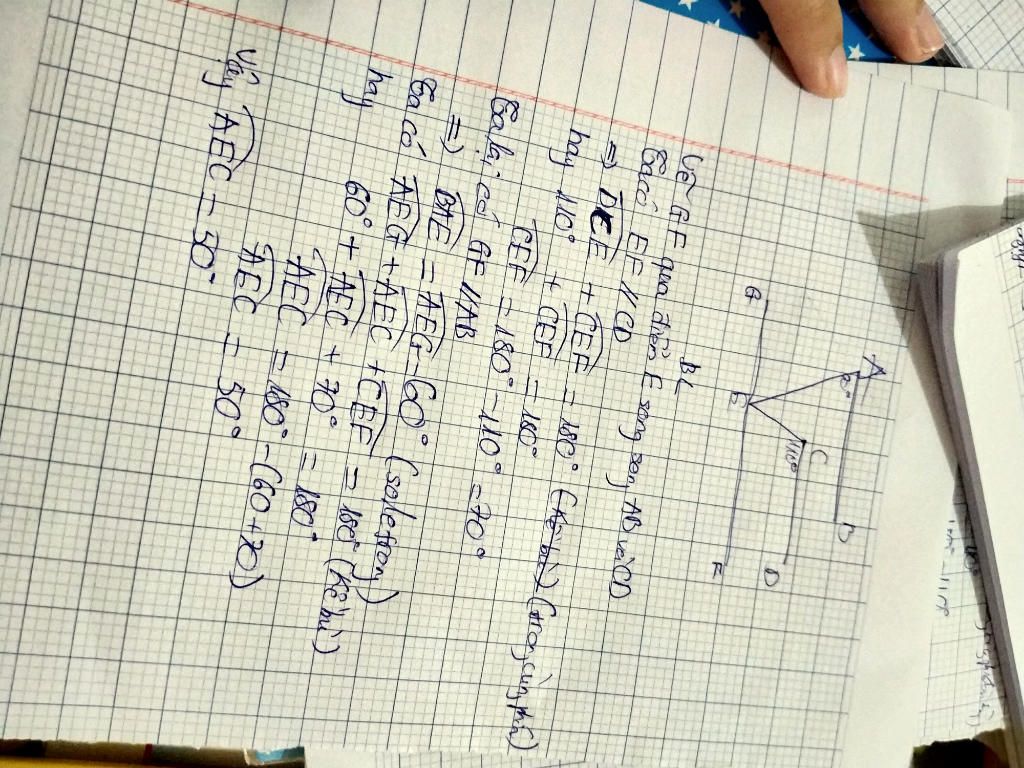 A
60°
B
C
110°
D
G
E
F
BL
Vẽ GF qua điểm E song song AB và CD
Ta có EF // CD
=> DCE + CEF = 180° (kề bù) (trong cùng phía)
hay 110° + CEF = 180°
CEF = 180° - 110° = 70°
Ta lại có GF // AB
=> BAE = AEG = 60° (sole trong)
Ta có AEG + AEC + CEF = 180° (kề bù)
hay 60° + AEC + 70° = 180°
AEC = 180° - (60 + 70)
AEC = 50°
Vậy AEC = 50°